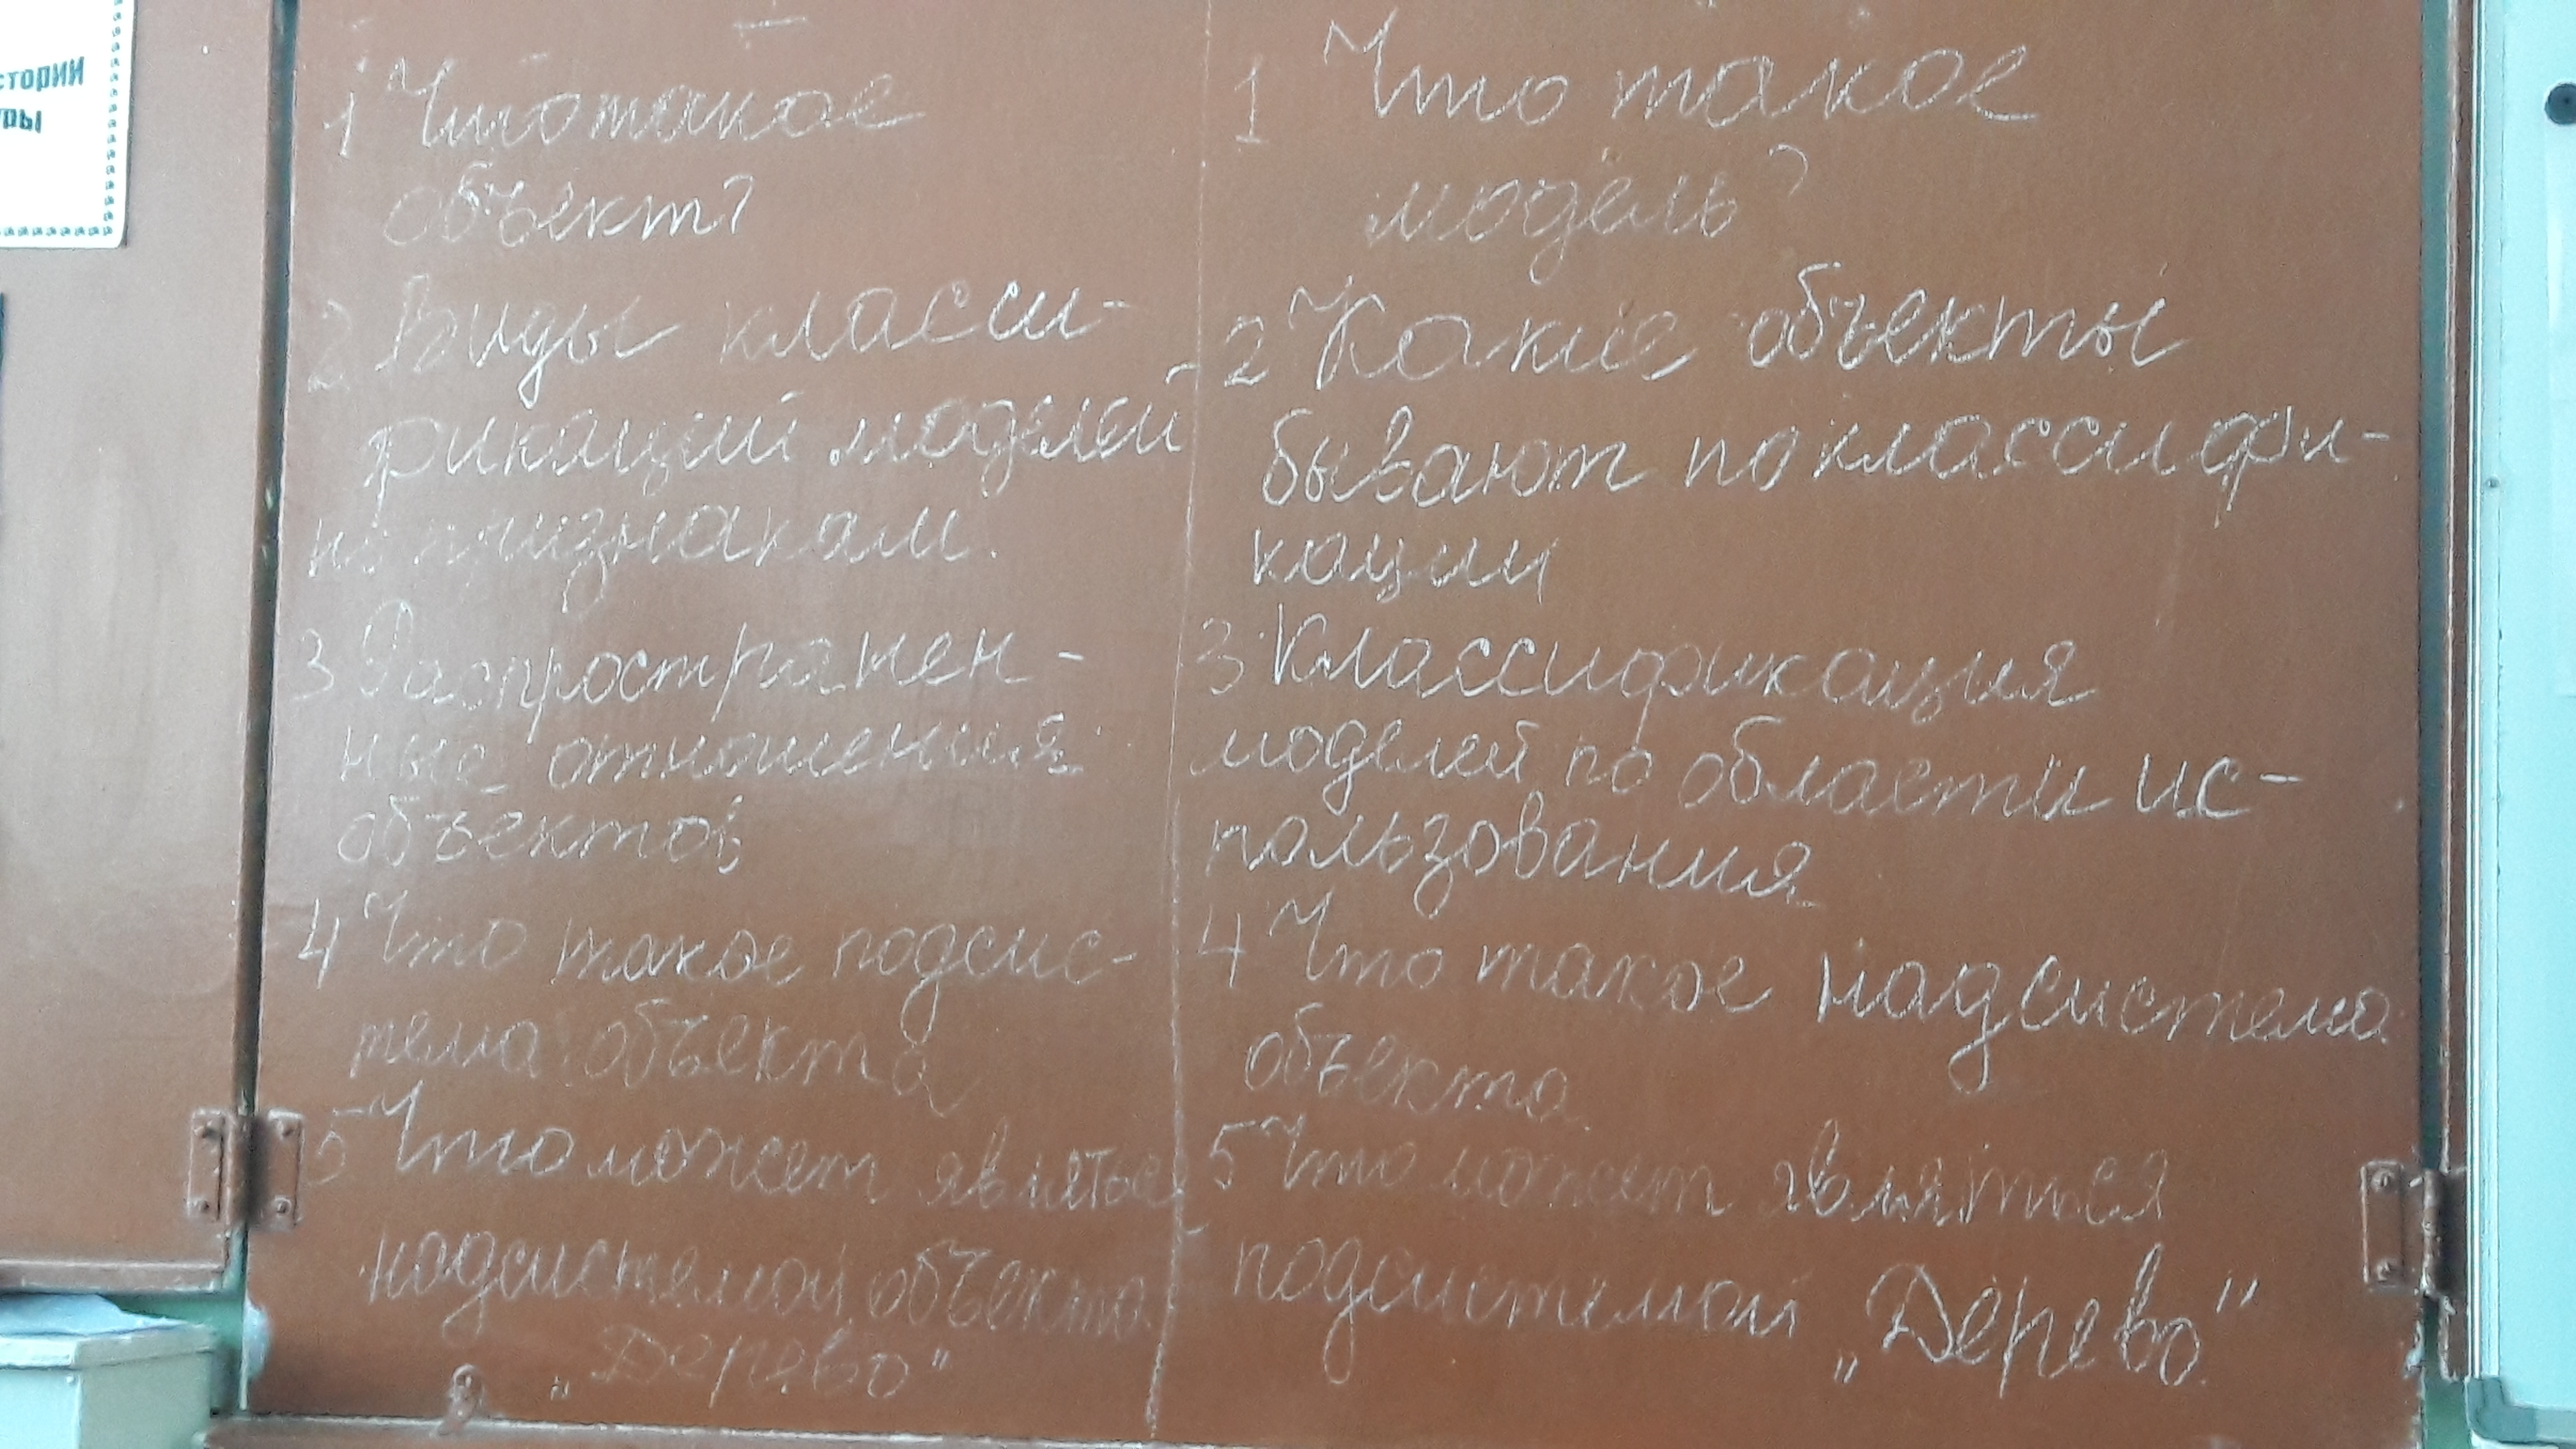 стории
ры
1 Что такое
объект?
2 Виды класси-
фикаций моделей
по признакам.
3 Распространен-
ные отношения
объектов
4 Что такое подсис-
тема объекта
5 Что может являться
надсистемой объекта
„Дерево"
1 Что такое
модель?
2 Какие объекты
бывают по классифи-
кации
3 Классификация
моделей по области ис-
пользования
4 Что такое надсистема
объекта
5 Что может являться
подсистемой „Дерево"